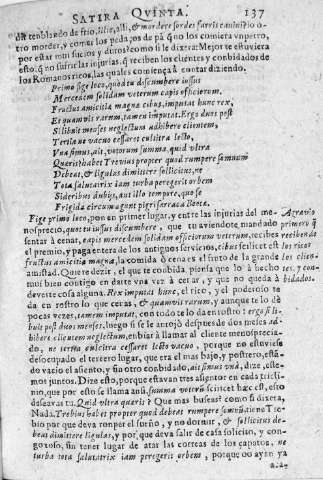 SATIRA QVINTA. 137
dir tenblando de frio, illic, alli, & mordere sordes farris canini, o o-
tro morder, y comer los pedaços de pã q̃ no los comiera vn perro,
por estar mui sucios y duros? como si le dixera: Mejor te estuviera
esto: q̃ no sufrir las injurias, q̃ reciben los clientes y conbidados de
los Romanos ricos, las quales comiença à contar diziendo.
Primo fige loco, quod tu discumbere iussus
Mercedem solidam veterum capis officiorum.
Fructus amicitiæ magnæ cibus, imputat hunc rex,
Et quamvis rarum, tamen imputat. Ergo duos post
Si libuit menses neglectum adhibere clientem,
Tertia ne vacuo cessaret culcitra lecto,
Vna simus, ait, votorum summa, quid vltra
Quæris? habet Trevius propter quod rumpere somnum
Debeat, & ligulas dimittere sollicitus, ne
Tota salutatrix iam turba peregerit orbem
Sideribus dubijs, aut illo tempore, quo se
Frigida circumagunt pigri sarraca Bootæ.
Fige primo loco, pon en primer lugar, y entre las injurias del me-
nosprecio, quod tu iussus discumbere, que tu aviendote mandado
sentar à cenar, capis mercedem solidam officiorum veterum, recibes
el premio, y paga entera de los antiguos servicios, cibus scilicet est
fructus amicitiæ magna, la comida ò cena es el fruto de la grande
amistad. Quiere dezir, el que te conbida piensa que lo à hecho
mui bien contigo en darte vna vez à cenar, y que no queda à
deverte cosa alguna. Rex imputat hunc, el rico, y el poderoso te
da en rostro lo que cenas, & quamvis rarum, y aunque te lo dè
pocas vezes, tamen imputat, con todo te lo da en rostro: ergo si li-
buit post duos menses, luego si se le antojò despues de dos meses ad-
hibere clientem neglectum, embiar à llamar al cliente menosprecia-
do, ne tertia culcitra cessaret lecto vacuo, porque no estuviese
desocupado el tercero lugar, que era el mas bajo, y postrero, està-
do vacio el asiento, y sin otro conbidado, ait simus vna, dize, este-
mos juntos. Dize esto, porque estavan tres asientos en cada tricli-
nio, que por esto se llama ansi, summa votorum scilicet hæc est, esto
deseavas tu. Quid vltra quæris? Que mas buscas? como si dixera,
Nada. Trebius habet propter quod debeat rumpere somnum tiene Tre-
bio por que deva romper el sueño, y no dormir, & sollicitus de-
beat dimittere ligulas, y porque deva salir de casa solicito, y con-
goxoso, sin tener lugar de atar las correas de los çapatos, ne
turba tota salutatrix iam peregerit orbem, porque no ayan ya
Agravio
primero q̃
reciben de
los ricos
los clien-
tes, y con-
bidados.